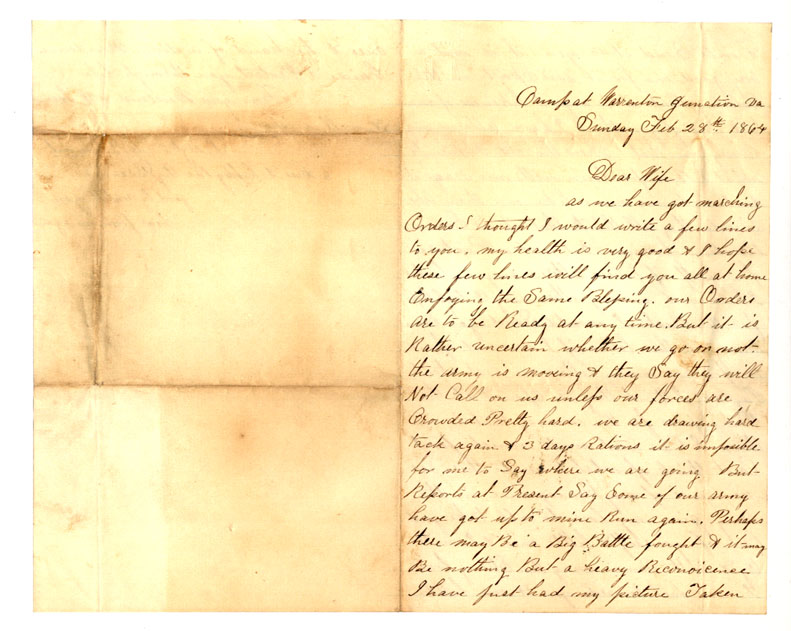 Camp at Warrenton Junction Va
Sunday Feb 28th 1864
Dear Wife
as we have got marching
Orders I thought I would write a few lines
to you. my health is very good & I hope
these few lines will find you all at home
Enjoying the Same Blessing. our Orders
are to be Ready at any time. But it is
Rather uncertain whether we go or not.
the army is moving & they Say they will
Not Call on us unless our forces are
Crowded Pretty hard. we are drawing hard
tack again & 3 days Rations it is imposible
for me to Say where we are going But
Reports at Present Say Some of our army
have got up to mine Run again. Perhaps
there may Be a Big Battle fought & it may
Be nothing But a heavy Reconoicence
I have just had my picture Taken